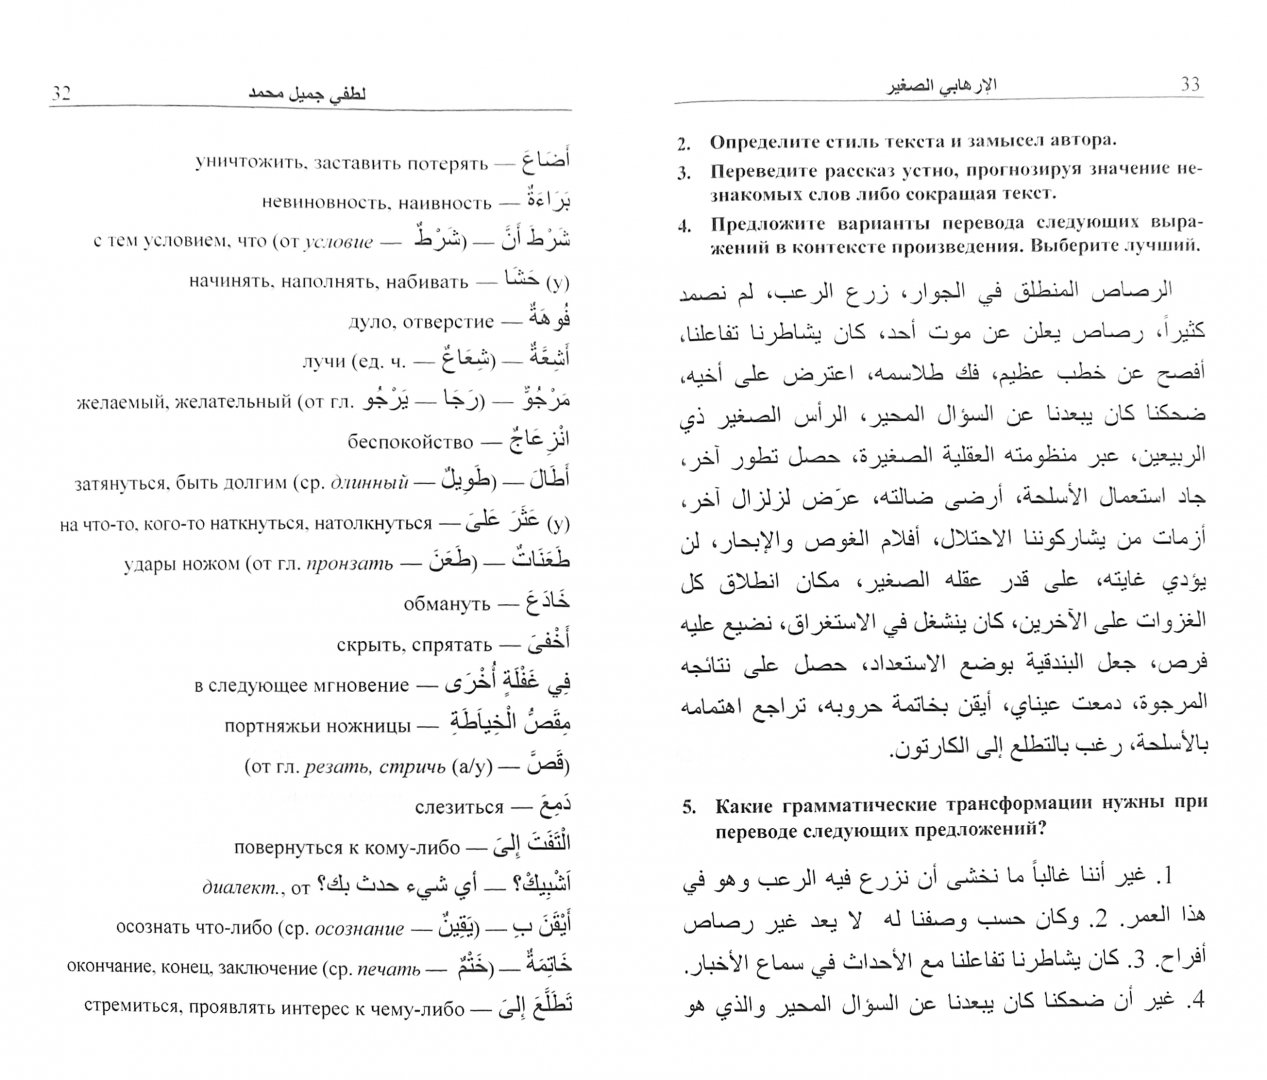 32
لطفي جميل محمد
أَضَاعَ — уничтожить, заставить потерять
بَرَاءَةٌ — невиновность, наивность
شَرْطَ أَنَّ — (شَرْطٌ — с тем условием, что (от условие
(у) حَشَا — начинять, наполнять, набивать
فُوهَةٌ — дуло, отверстие
أَشِعَّةٌ — (شِعَاعٌ — лучи (ед. ч.
مَرْجُوٌّ — (رَجَا — يَرْجُو — желаемый, желательный (от гл.
انْزِعَاجٌ — беспокойство
أَطَالَ — (طَوِيلٌ — затянуться, быть долгим (ср. длинный
(у) عَثَرَ عَلىَ — на что-то, кого-то наткнуться, натолкнуться
طَعَنَاتٌ — (طَعَنَ — удары ножом (от гл. пронзать
خَادَعَ — обмануть
أَخْفىَ — скрыть, спрятать
فِي غَفْلَةٍ أُخْرَى — в следующее мгновение
مِقَصُّ الْخِيَاطَةِ — портняжьи ножницы
(قَصَّ — (а/у) от гл. резать, стричь)
دَمِعَ — слезиться
الْتَفَتَ إِلىَ — повернуться к кому-либо
اَشْبِيكْ؟ — أي شيء حدث بك؟ диалект., от
أَيْقَنَ بِ — (يَقِينٌ — осознать что-либо (ср. осознание
خَاتِمَةٌ — (خَتْمٌ — окончание, конец, заключение (ср. печать
تَطَلَّعَ إِلىَ — стремиться, проявлять интерес к чему-либо
الإرهابي الصغير
33
2. Определите стиль текста и замысел автора.
3. Переведите рассказ устно, прогнозируя значение не-
знакомых слов либо сокращая текст.
4. Предложите варианты перевода следующих выра-
жений в контексте произведения. Выберите лучший.
الرصاص المنطلق في الجوار، زرع الرعب، لم نصمد
كثيراً، رصاص يعلن عن موت أحد، كان يشاطرنا تفاعلنا،
أفصح عن خطب عظيم، فك طلاسمه، اعترض على أخيه،
ضحكنا كان يبعدنا عن السؤال المحير، الرأس الصغير ذي
الربيعين، عبر منظومته العقلية الصغيرة، حصل تطور آخر،
جاد استعمال الأسلحة، أرضى ضالته، عرّض لزلزال آخر،
أزمات من يشاركوننا الاحتلال، أفلام الغوص والإبحار، لن
يؤدي غايته، على قدر عقله الصغير، مكان انطلاق كل
الغزوات على الآخرين، كان ينشغل في الاستغراق، نضيع عليه
فرص، جعل البندقية بوضع الاستعداد، حصل على نتائجه
المرجوة، دمعت عيناي، أيقن بخاتمة حروبه، تراجع اهتمامه
بالأسلحة، رغب بالتطلع إلى الكارتون.
5. Какие грамматические трансформации нужны при
переводе следующих предложений?
1. غير أننا غالباً ما نخشى أن نزرع فيه الرعب وهو في
هذا العمر. 2. وكان حسب وصفنا له لا يعد غير رصاص
أفراح. 3. كان يشاطرنا تفاعلنا مع الأحداث في سماع الأخبار.
4. غير أن ضحكنا كان يبعدنا عن السؤال المحير والذي هو